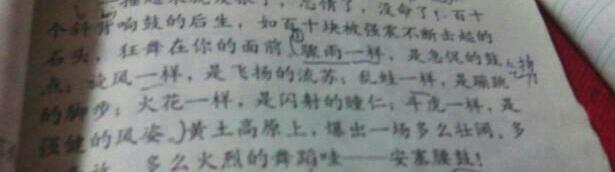 搔起来就发狠了，忘情了，没命了！百十
个斜背响鼓的后生，如百十块被强震不断击起的
石头，狂舞在你的面前。骤雨一样，是急促的鼓
点；旋风一样，是飞扬的流苏；乱蛙一样，是蹦跳
的脚步；火花一样，是闪射的瞳仁；斗虎一样，是
强健的风姿。）黄土高原上，爆出一场多么壮阔、多
多么火烈的舞蹈哇——安塞腰鼓！